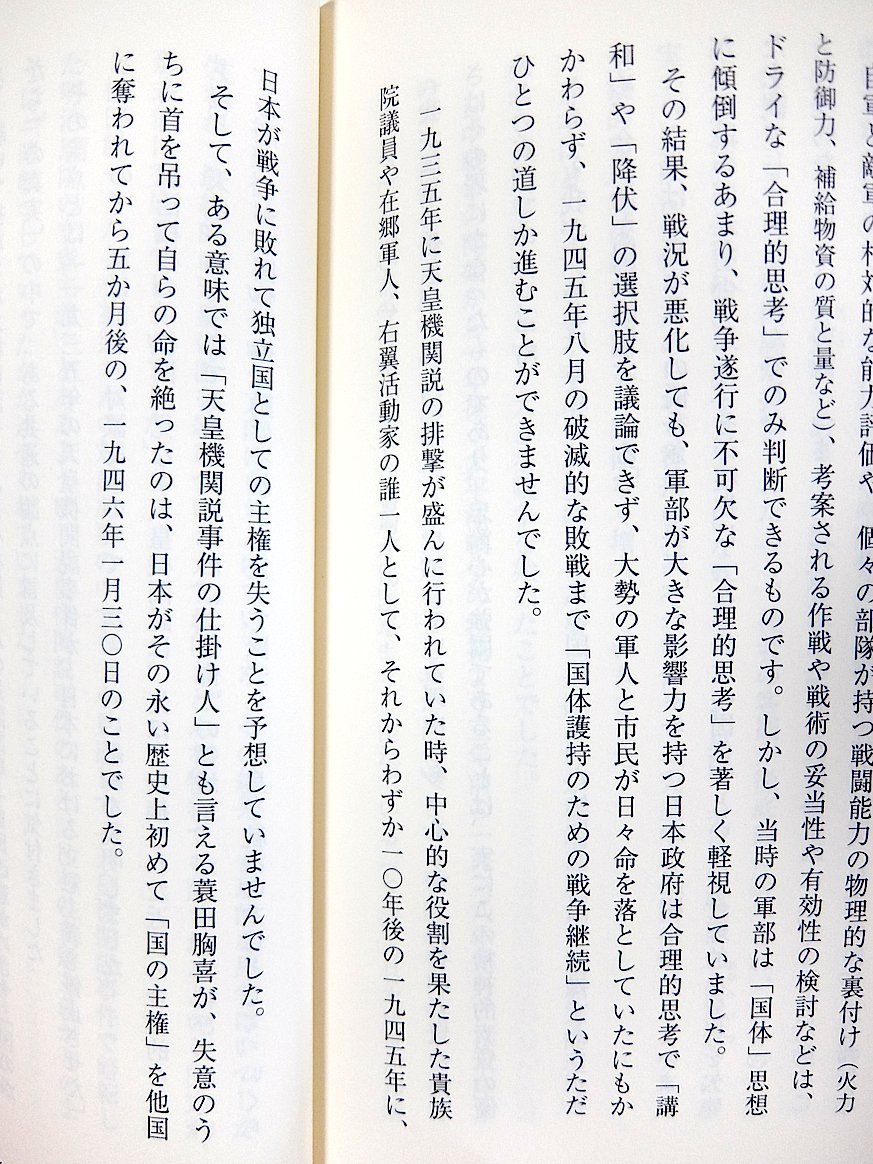 自軍と敵軍の相対的な能力評価や、個々の部隊が持つ戦闘能力の物理的な裏付け（火力
と防御力、補給物資の質と量など）、考案される作戦や戦術の妥当性や有効性の検討などは、
ドライな「合理的思考」でのみ判断できるものです。しかし、当時の軍部は「国体」思想
に傾倒するあまり、戦争遂行に不可欠な「合理的思考」を著しく軽視していました。
その結果、戦況が悪化しても、軍部が大きな影響力を持つ日本政府は合理的思考で「講
和」や「降伏」の選択肢を議論できず、大勢の軍人と市民が日々命を落としていたにもか
かわらず、一九四五年八月の破滅的な敗戦まで「国体護持のための戦争継続」というただ
ひとつの道しか進むことができませんでした。
一九三五年に天皇機関説の排撃が盛んに行われていた時、中心的な役割を果たした貴族
院議員や在郷軍人、右翼活動家の誰一人として、それからわずか一〇年後の一九四五年に、
日本が戦争に敗れて独立国としての主権を失うことを予想していませんでした。
そして、ある意味では「天皇機関説事件の仕掛け人」とも言える蓑田胸喜が、失意のう
ちに首を吊って自らの命を絶ったのは、日本がその永い歴史上初めて「国の主権」を他国
に奪われてから五か月後の、一九四六年一月三〇日のことでした。